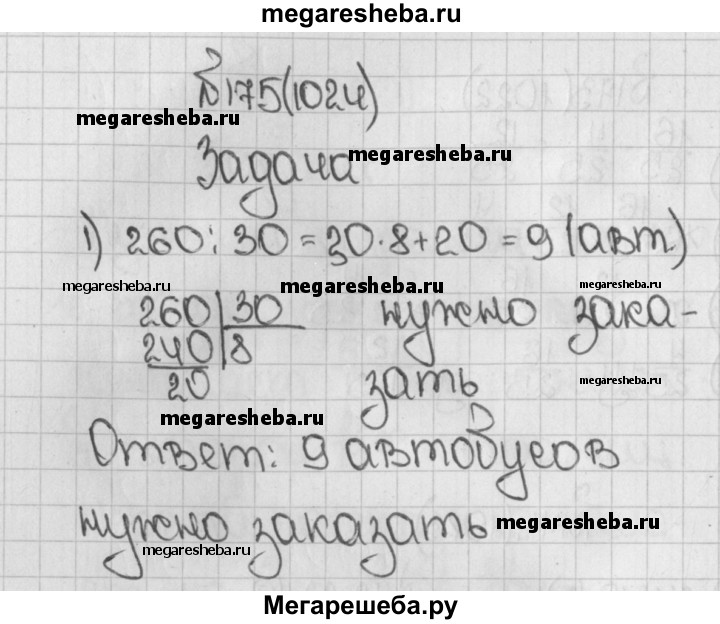 megaresheba.ru
№175(1024)
megaresheba.ru
Задача megaresheba.ru
1) 260 : 30 = 30·8+20 = 9 (авт.)
megaresheba.ru megaresheba.ru megaresheba.ru
260 30 нужно зака-
240 8
20 зать megaresheba.ru
megaresheba.ru
Ответ: 9 автобусов
нужно заказать megaresheba.ru
megaresheba.ru
Мегарешеба.ру